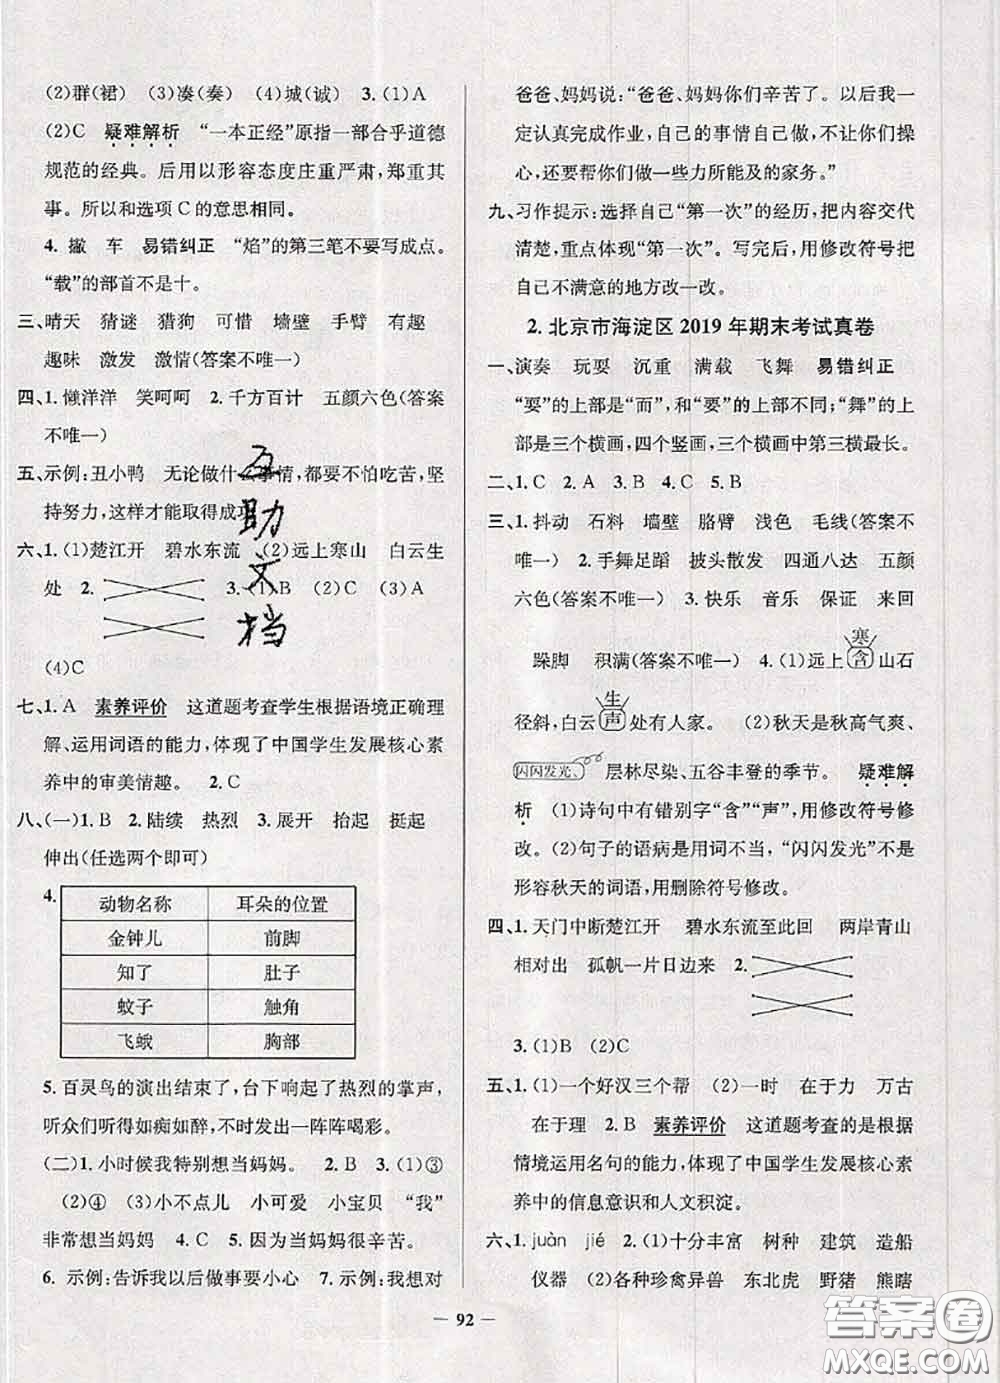 (2)群(裙) (3)凑(奏) (4)城(诚) 3.(1)A
(2)C 疑难解析 “一本正经”原指一部合乎道德
规范的经典。后用以形容态度庄重严肃,郑重其
事。所以和选项 C 的意思相同。
4. 撇 车 易错纠正 “焰”的第三笔不要写成点。
“载”的部首不是十。
三、晴天 猜谜 猎狗 可惜 墙壁 手臂 有趣
趣味 激发 激情(答案不唯一)
四、1. 懒洋洋 笑呵呵 2. 千方百计 五颜六色(答案
不唯一)
五、示例:丑小鸭 无论做什 情,都要不怕吃苦,坚
持努力,这样才能取得成
六、1.(1)楚江开 碧水东流 (2)远上寒山 白云生
处 2. 3.(1)B (2)B (3)A
(4)C
七、1. A 素养评价 这道题考查学生根据语境正确理
解、运用词语的能力,体现了中国学生发展核心素
养中的审美情趣。 2. C
八、(一)1. B 2. 陆续 热烈 3. 展开 抬起 挺起
伸出(任选两个即可)
4.
动物名称 耳朵的位置
金钟儿 前脚
知了 肚子
蚊子 触角
飞蛾 胸部
5. 百灵鸟的演出结束了,台下响起了热烈的掌声,
听众们听得如痴如醉,不时发出一阵阵喝彩。
(二)1. 小时候我特别想当妈妈。 2. B 3.(1)③
(2)④ (3)小不点儿 小可爱 小宝贝 “我”
非常想当妈妈 4. C 5. 因为当妈妈很辛苦。
6. 示例:告诉我以后做事要小心 7. 示例:我想对
爸爸、妈妈说:“爸爸、妈妈你们辛苦了。以后我一
定认真完成作业,自己的事情自己做,不让你们操
心,还要帮你们做一些力所能及的家务。”
九、习作提示:选择自己“第一次”的经历,把内容交代
清楚,重点体现“第一次”。写完后,用修改符号把
自己不满意的地方改一改。
2. 北京市海淀区 2019 年期末考试真卷
一、演奏 玩耍 沉重 满载 飞舞 易错纠正
“耍”的上部是“而”,和“要”的上部不同;“舞”的上
部是三个横画,四个竖画,三个横画中第三横最长。
二、1. C 2. A 3. B 4. C 5. B
三、1. 抖动 石料 墙壁 胳臂 浅色 毛线(答案不
唯一) 2. 手舞足蹈 披头散发 四通八达 五颜
六色(答案不唯一) 3. 快乐 音乐 保证 来回
寒
跺脚 积满(答案不唯一) 4.(1)远上含山石
生
径斜,白云声处有人家。 (2)秋天是秋高气爽、
闪闪发光、层林尽染、五谷丰登的季节。 疑难解
析 (1)诗句中有错别字“含”“声”,用修改符号修
改。(2)句子的语病是用词不当,“闪闪发光”不是
形容秋天的词语,用删除符号修改。
四、1. 天门中断楚江开 碧水东流至此回 两岸青山
相对出 孤帆一片日边来 2.
3.(1)B (2)C
五、1.(1)一个好汉三个帮 (2)一时 在于力 万古
在于理 2. B 素养评价 这道题考查的是根据
情境运用名句的能力,体现了中国学生发展核心素
养中的信息意识和人文积淀。
六、1. juàn jié 2.(1)十分丰富 树种 建筑 造船
仪器 (2)各种珍禽异兽 东北虎 野猪 熊瞎
— 92 —
互
助
文
档
答案卷
MXQE.COM